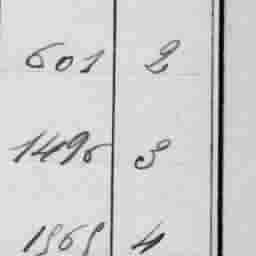 601 2
1496 3
1969 4